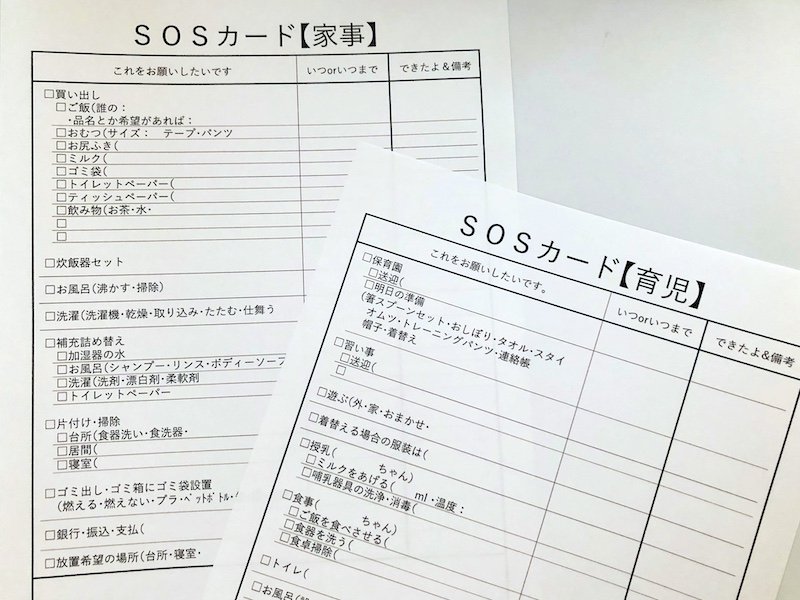 SOSカード【家事】
これをお願いしたいです いつorいつまで できたよ&備考
□買い出し
□ご飯(誰の：
・品名とか希望があれば：
□おむつ(サイズ： テープ・パンツ
□お尻ふき(
□ミルク(
□ゴミ袋(
□トイレットペーパー(
□ティッシュペーパー(
□飲み物(お茶・水・
□
□
□炊飯器セット
□お風呂(沸かす・掃除)
□洗濯(洗濯機・乾燥・取り込み・たたむ・仕舞う
□補充詰め替え
□加湿器の水
□お風呂(シャンプー・リンス・ボディーソープ
□洗濯(洗剤・漂白剤・柔軟剤
□トイレットペーパー
□片付け・掃除
□台所(食器洗い・食洗器・
□居間(
□寝室(
□ゴミ出し・ゴミ箱にゴミ袋設置
(燃える・燃えない・プラ・ペットボトル・
□銀行・振込・支払(
□放置希望の場所(台所・寝室・
SOSカード【育児】
これをお願いしたいです。 いつorいつまで できたよ&備考
□保育園
□送迎(
□明日の準備
(著スプーンセット・おしぼり・タオル・スタイ
オムツ・トレーニングパンツ・連絡帳
帽子・着替え
□習い事
□送迎(
□
□遊ぶ(外・家・おまかせ・
□着替える場合の服装は(
□授乳( ちゃん)
□ミルクをあげる( ml・温度：
□哺乳器具の洗浄・消毒(
□食事( ちゃん)
□ご飯を食べさせる(
□食器を洗う(
□食卓掃除(
□トイレ(
□お風呂(